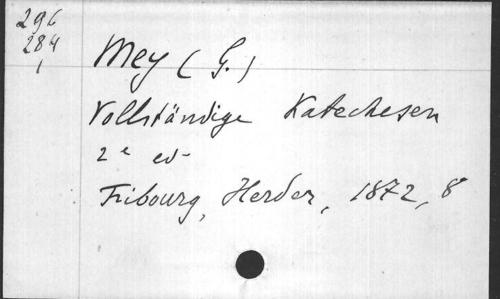 296
284
1
Mey (G.)
Vollständige Katechesen
2e ed
Fribourg, Herder, 1872, 8